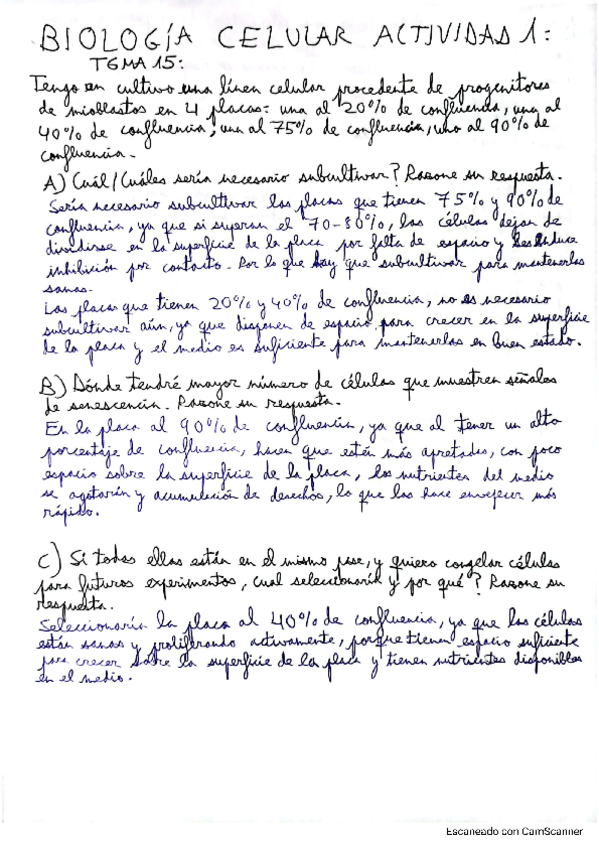 BIOLOGÍA CELULAR ACTIVIDAD 1:
TEMA 15:
Tengo en cultivo una línea celular procedente de progenitores
de mioblastos en 4 placas: una al 20% de confluencia, una al
40% de confluencia, una al 75% de confluencia, una al 90% de
confluencia.
A) Cuál/Cuáles sería necesario subcultivar? Razone su respuesta.
Sería necesario subcultivar las placas que tienen 75% y 90% de
confluencia, ya que si superan el 70-80%, las células dejan de
dividirse en la superficie de la placa por falta de espacio y se induce
inhibición por contacto. Por lo que hay que subcultivar para mantenerlas
sanas.
Las placas que tienen 20% y 40% de confluencia, no es necesario
subcultivar aún, ya que disponen de espacio para crecer en la superficie
de la placa y el medio es suficiente para mantenerlas en buen estado.
B) Dónde tendré mayor número de células que muestren señales
de senescencia. Razone su respuesta.
En la placa al 90% de confluencia, ya que al tener un alto
porcentaje de confluencia, hacen que estén más apretadas, con poco
espacio sobre la superficie de la placa, los nutrientes del medio
se agotarán y acumulación de desechos, lo que las hace envejecer más
rápido.
C) Si todas ellas están en el mismo pase, y quiero congelar células
para futuros experimentos, cual seleccionaría y por qué? Razone su
respuesta.
Seleccionaría la placa al 40% de confluencia, ya que las células
están sanas y proliferando activamente, porque tienen espacio suficiente
para crecer sobre la superficie de la placa y tienen nutrientes disponibles
en el medio.
Escaneado con CamScanner